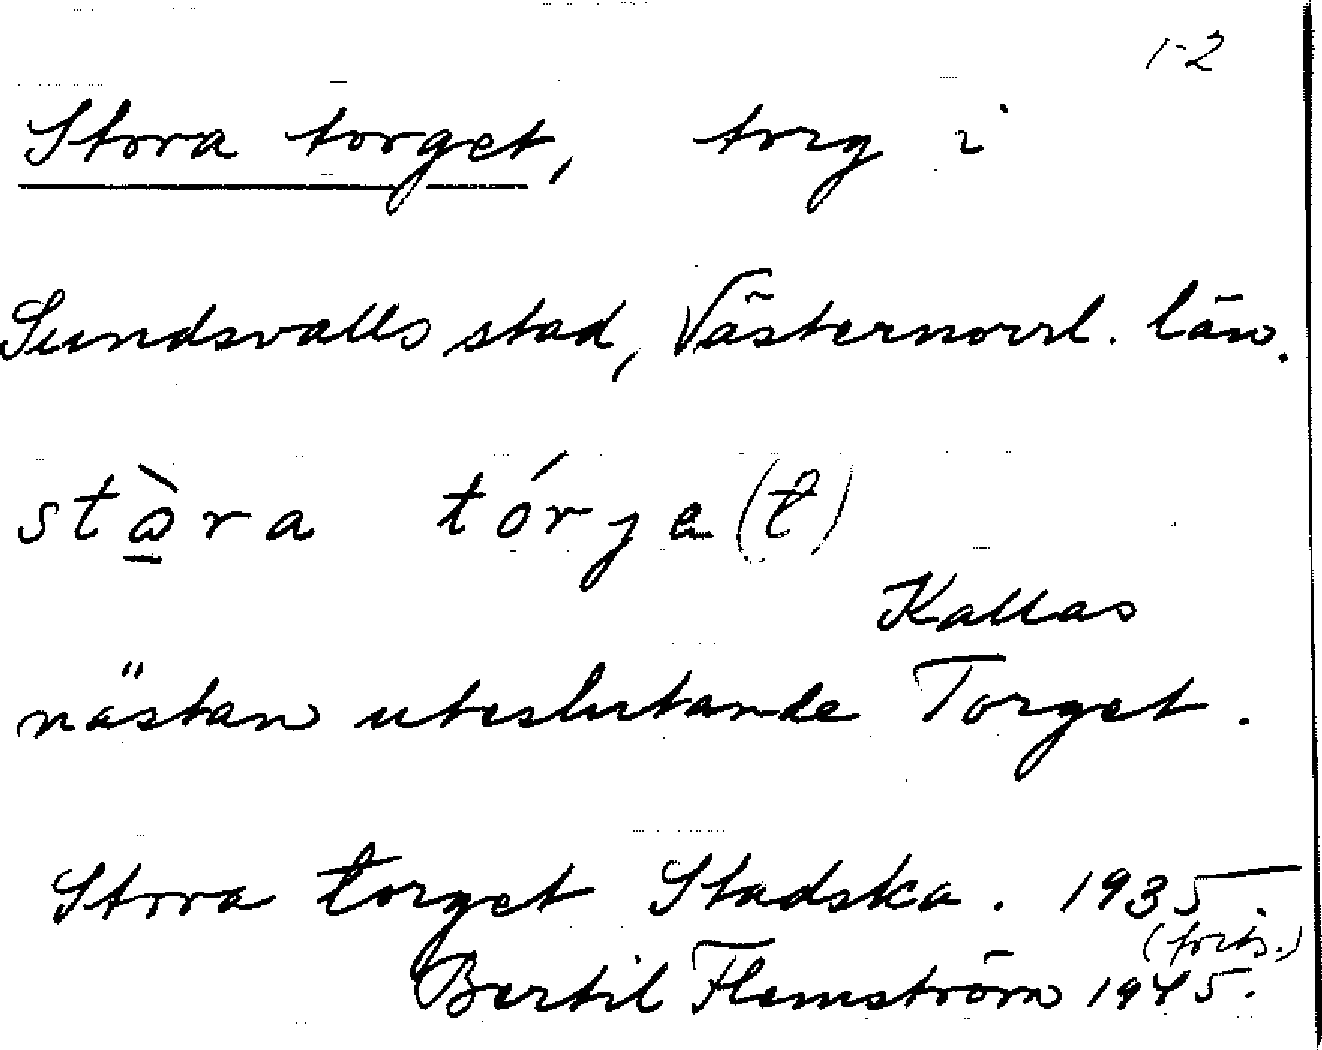 1-2
Stora torget, torg i
Sundsvalls stad, Västernorrl. län.
stò̱ra tórje(t)
Kallas
nästan uteslutande Torget.
Stora torget Stadska. 1935
(forts.)
Bertil Flemström 1945.